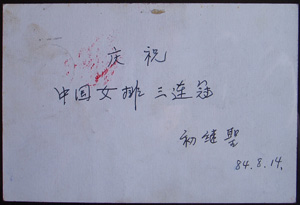 庆祝
中国女排三连冠
初继圣
84.8.14.